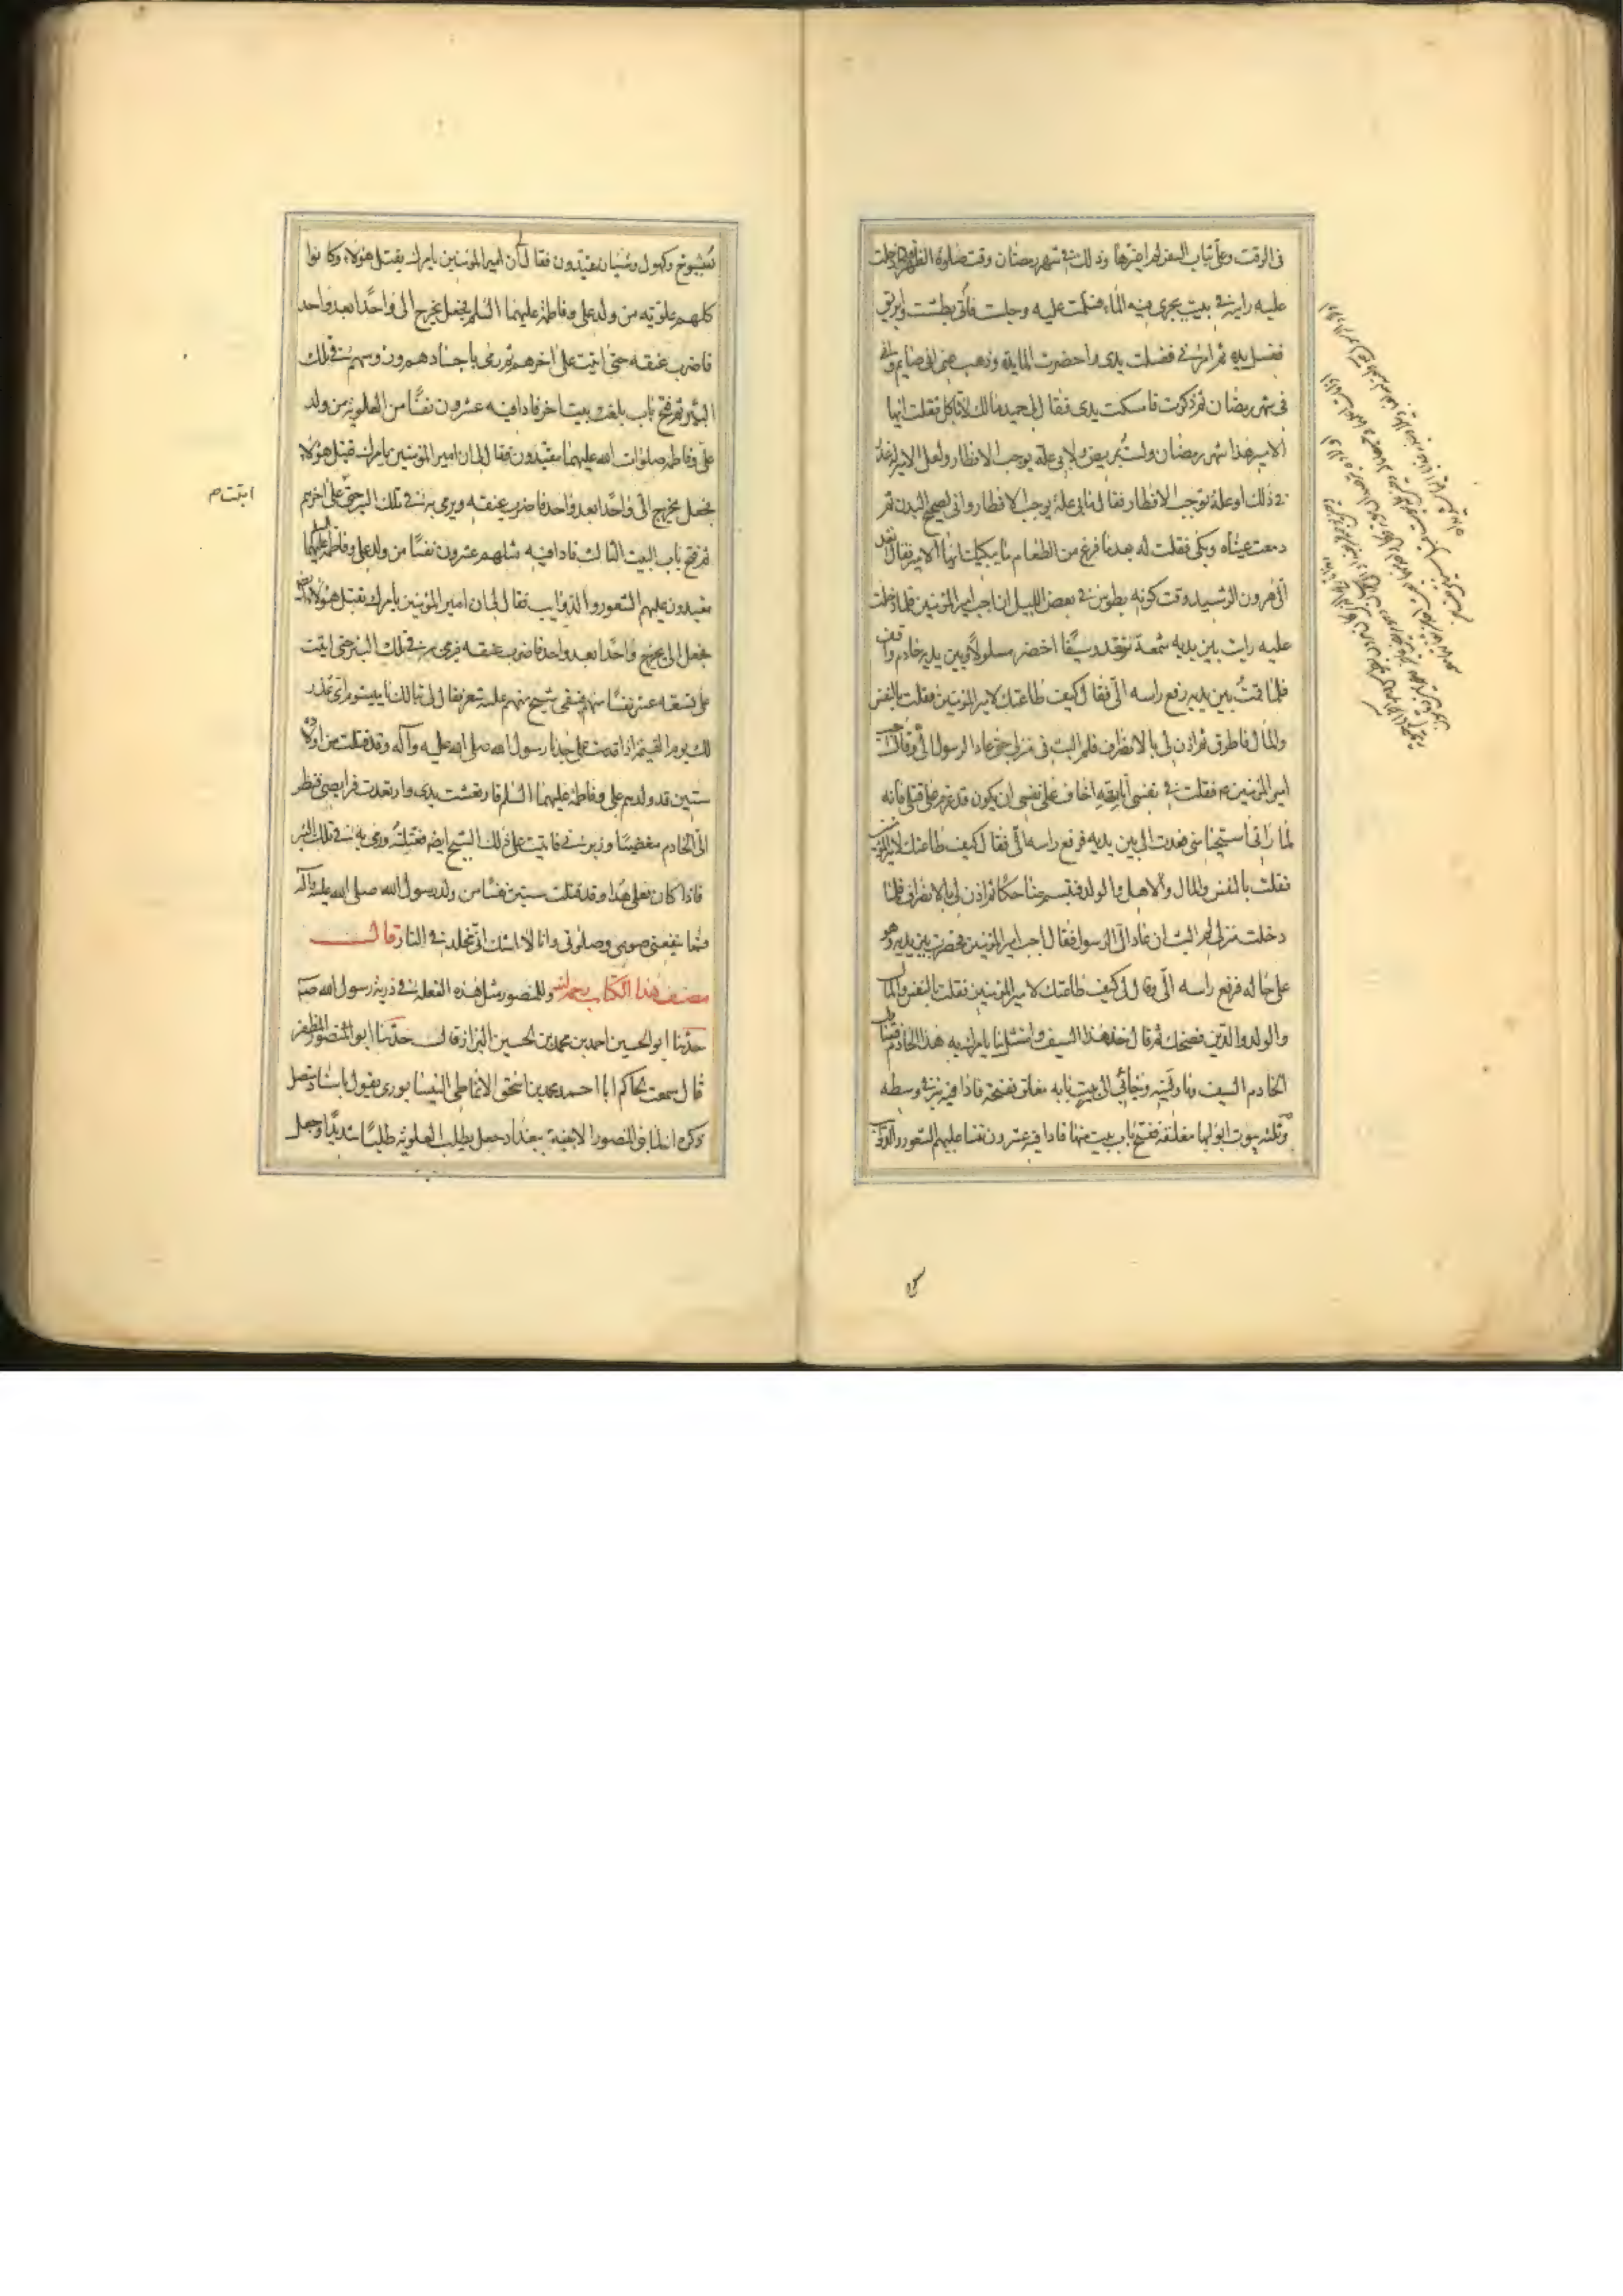 فى الوقت وعلىّ ثياب السفر لم اغيرها وذلك فى شهر رمضان وقت صلوة الظهر فلما دخلت
عليه رايته فى بيت يجرى فيه الماء فسلمت عليه وجلست فاتى بطشت وابريق
فغسل يديه ثم امرنى فغسلت يدى واحضرت المايدة وذهب عنى انى صايم وانى
فى شهر رمضان ثم ذكرت فامسكت يدى فقال لى حميد مالك لا تاكل فقلت ايها
الامير هذا شهر رمضان ولست بمريض ولا بى علة يوجب الافطار ولعل الامير له عذر
فى ذلك او علة توجب الافطار فقال مابى علة يوجب الافطار وانى لصحيح البدن ثم
دمعت عيناه وبكى فقلت له بعد ما فرغ من الطعام ما يبكيك ايها الامير فقال انفذ
الى هرون الرشيد وقت كونه بطوس فى بعض الليل ان اجب امير المؤمنين فلما دخلت
عليه رايت بين يديه شمعة تتوقد وسيفا اخضر مسلولا وبين يديه خادم واقف
فلما قمت بين يديه رفع راسه الىّ فقال كيف طاعتك لامير المؤمنين فقلت بالنفس
والمال فاطرق ثم اذن لى بالانصراف فلم البث فى منزلى حتى عاد الرسول الىّ وقال اجب
امير المؤمنين فقلت فى نفسى انا لله اخاف على نفسى ان يكون قد عزم على قتلى فانه
لما رانى استحيا منى فعدت الى بين يديه فرفع راسه الىّ فقال كيف طاعتك لامير المؤمنين
فقلت بالنفس والمال والاهل والولد فتبسم ضاحكا ثم اذن لى بالانصراف فلما
دخلت منزلى لم البث ان عاد الىّ الرسول فقال اجب امير المؤمنين فحضرت بين يديه وهو
على حاله فرفع راسه الىّ وقال لى كيف طاعتك لامير المؤمنين فقلت بالنفس والمال
والولد والدين فضحك ثم قال خذ هذا السيف وامتثل ما يامرك به هذا الخادم فتناول
الخادم السيف وناولنيه وجائى الى بيت بابه مغلق ففتحه فاذا فيه بئر فى وسطه
وثلثة بيوت ابوابها مغلقة ففتح باب بيت منها فاذا فيه عشرون نفسا عليهم الشعور والذوائب
شيوخ وكهول وشبان مقيدون فقال لى ان امير المؤمنين يامرك بقتل هؤلاء وكانوا
كلهم علوية من ولد على وفاطمة عليهما السلم فجعل يخرج الى واحدا بعد واحد
فاضرب عنقه حتى اتيت على اخرهم ثم رمى باجسادهم ورؤسهم فى تلك
البئر ثم فتح باب بيت اخر فاذا فيه عشرون نفسا من العلوية من ولد
على وفاطمة صلوات الله عليهما مقيدون فقال لى ان امير المؤمنين يامرك بقتل هؤلاء
فجعل يخرج الىّ واحدا بعد واحد فاضرب عنقه ويرمى به فى تلك البئر حتى على اخرهم
اتيت م
ثم فتح باب البيت الثالث فاذا فيه مثلهم عشرون نفسا من ولد على وفاطمة عليهما السلم
مقيدون عليهم الشعور والذوايب فقال لى ان امير المؤمنين يامرك بقتل هؤلاء ايضا
فجعل الى يخرج واحدا بعد واحد فاضرب عنقه فيرمى به فى تلك البئر حتى اتيت
على تسعة عشر نفسا منهم فبقى شيخ منهم عليه شعر فقال لى تبا لك يا ميشوم اى عذر
لك يوم القيمة اذا قدمت على جدنا رسول الله صلى الله عليه وآله وقد قتلت من اولاده
ستين قد ولدهم على وفاطمة عليهما السلم فارتعشت يدى وارتعدت فرايصى فنظر
الىّ الخادم مغضبا وزبرنى فاتيت على ذلك الشيخ ايضا فقتلته ورمى به فى تلك البئر
فاذا كان فعلى هذا وقد قتلت ستين نفسا من ولد رسول الله صلى الله عليه وآله
فما ينفعنى صومى وصلوتى وانا لا اشك انى مخلد فى النار قال
مصنف هذا الكتاب رحمه الله وللمنصور مثل هذه الفعلة فى ذرية رسول الله ص
حدثنا ابو الحسين احمد بن محمد بن الحسين البزاز قال حدثنا ابو المنصور المظفر
قال سمعت الحاكم ابا احمد محمد بن اسحق الانماطى النيسابورى يقول باسناد متصل
ذكره انه لما بنى المنصور الابنية ببغداد جعل يطلب العلوية طلبا شديدا وجعل